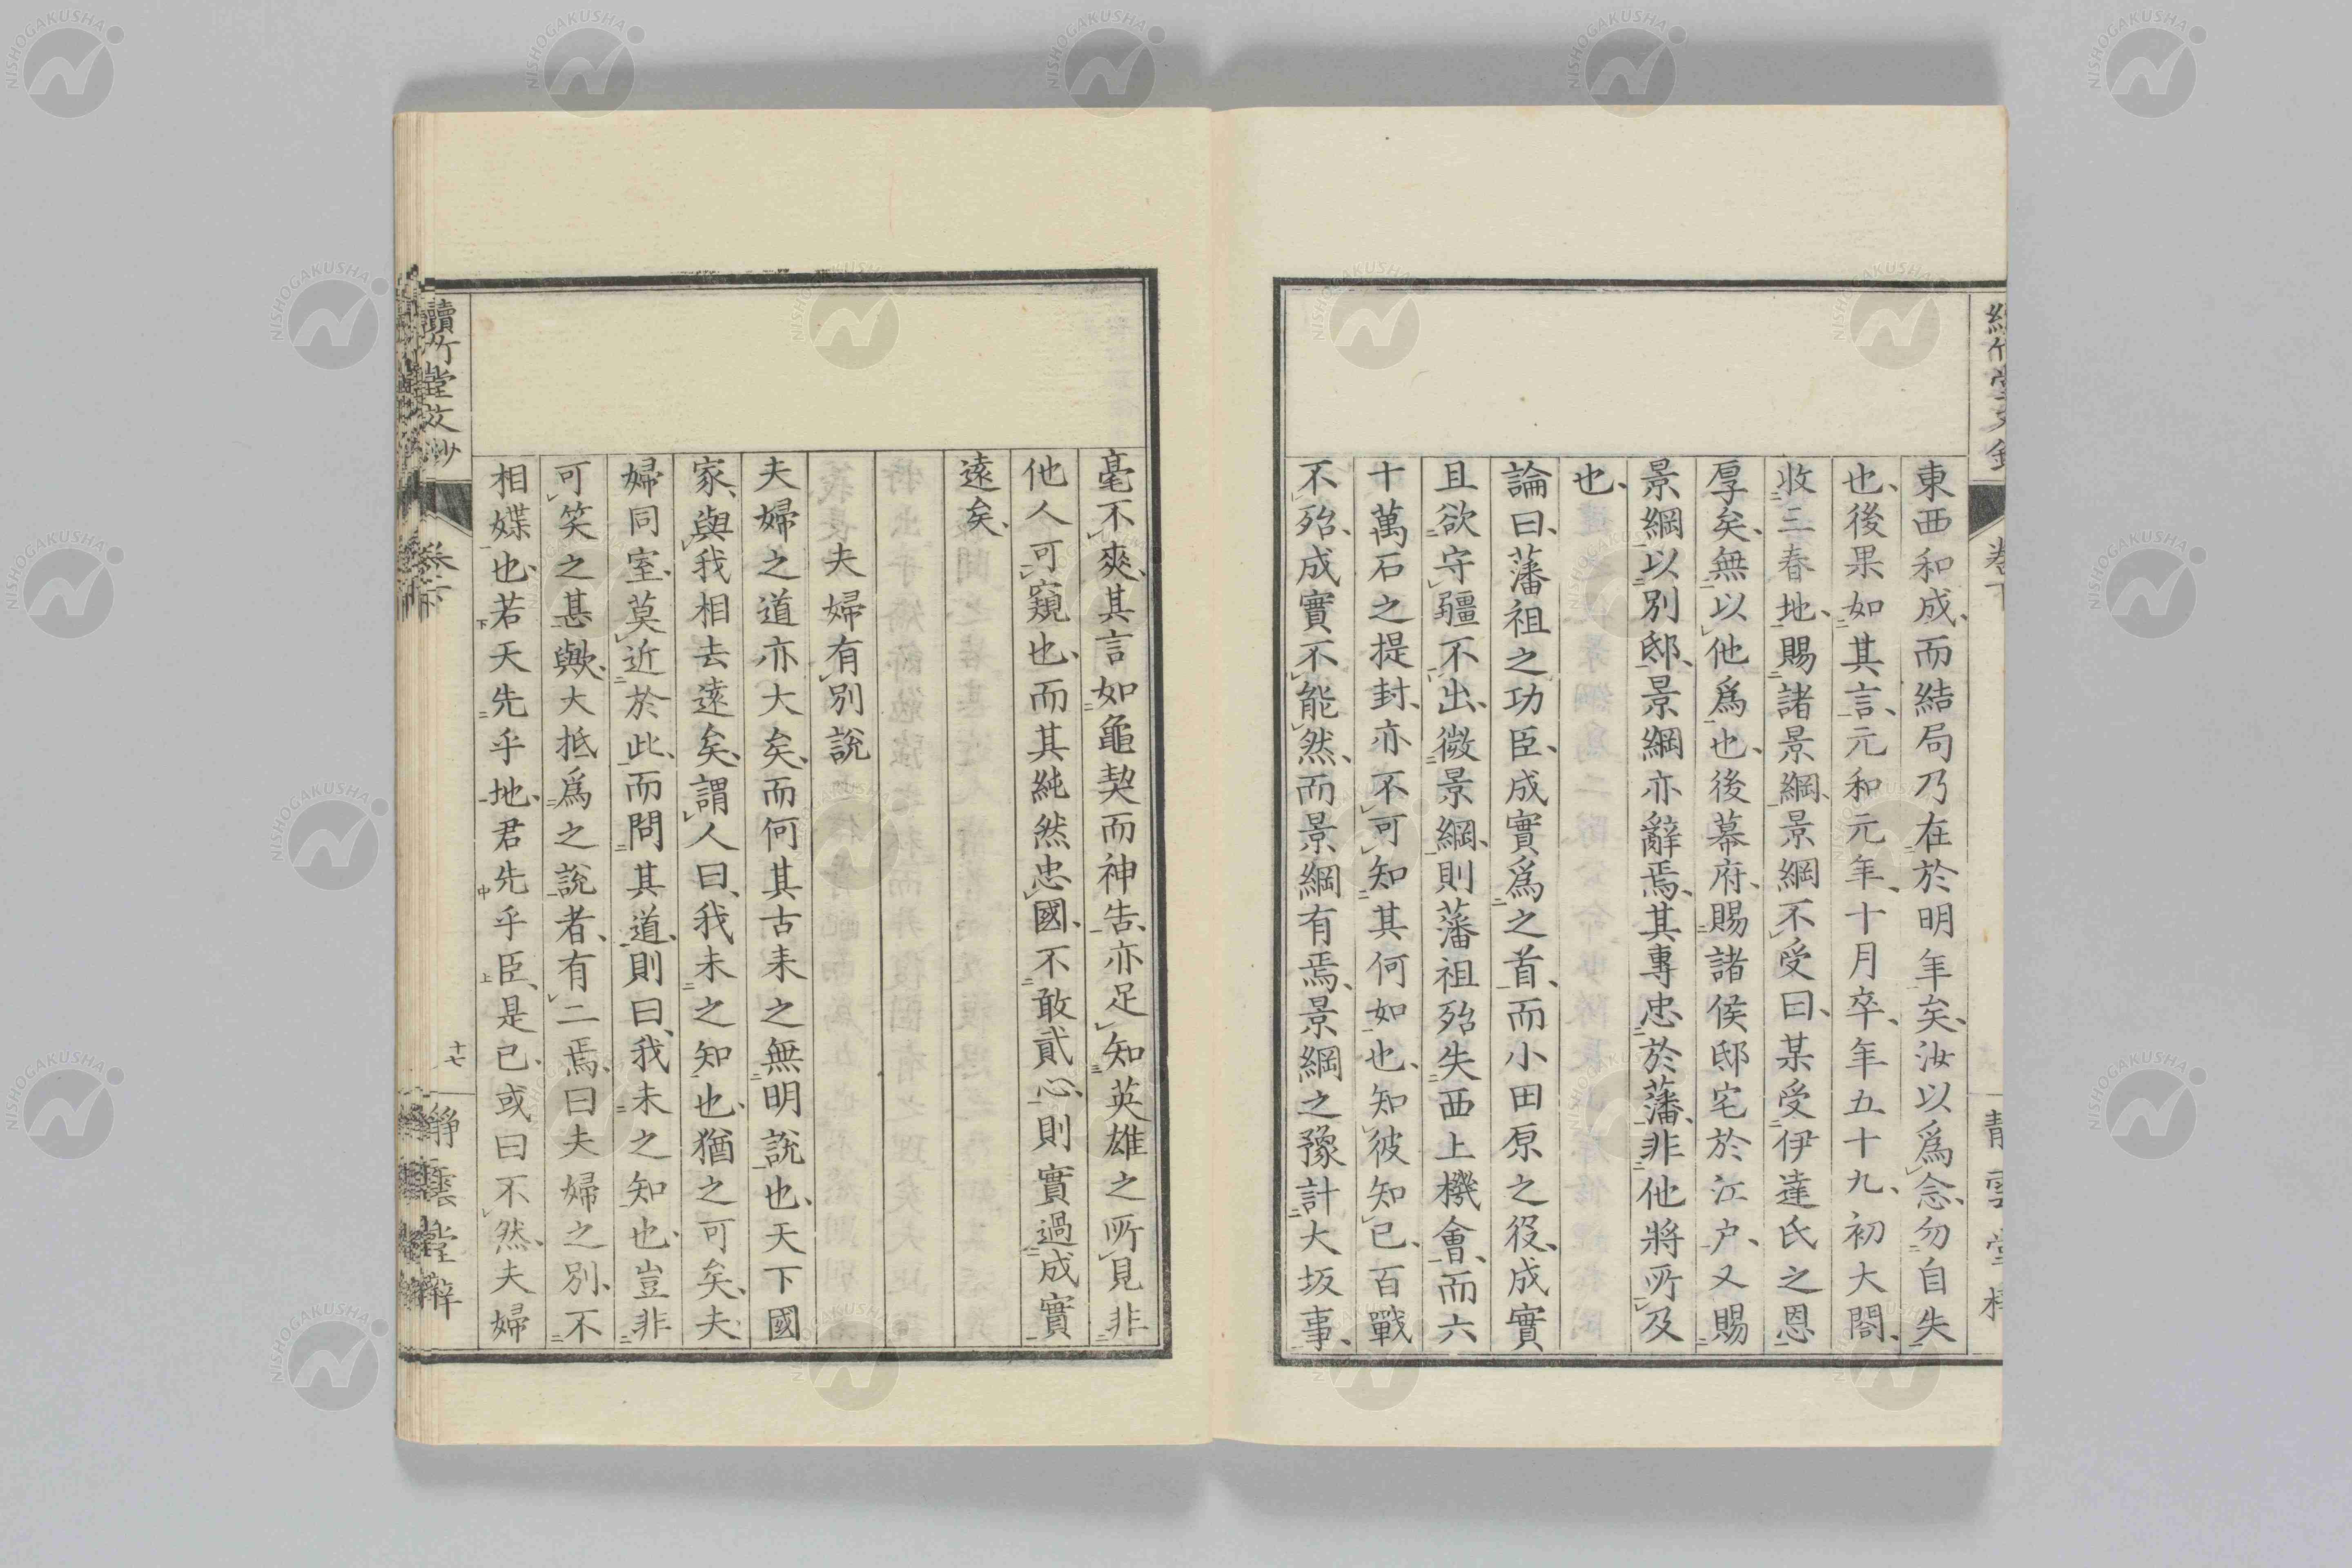 東西和成、而結局乃在於明年矣、汝以爲念、勿自失
也、後果如其言、元和元年、十月卒、年五十九、初大閤、
收三春地、賜諸景綱、景綱不受曰、某受伊達氏之恩
厚矣、無以他爲也、後幕府、賜諸侯邸宅於江戸、又賜
景綱以別邸、景綱亦辭焉、其專忠於藩、非他將所及
也、
論曰、藩祖之功臣、成實爲之首、而小田原之役、成實
且欲守疆不出、微景綱、則藩祖殆失西上機會、而六
十萬石之提封、亦不可知其何如也、知彼知已、百戰
不殆、成實不能然、而景綱有焉、景綱之豫計大坂事、
毫不爽、其言如龜契而神告、亦足知英雄之所見非
他人可窺也、而其純然忠國、不敢貳心、則實過成實
遠矣、
夫婦有別說
夫婦之道亦大矣、而何其古来之無明說也、天下國
家、與我相去遠矣、謂人曰、我未之知也、猶之可矣、夫
婦同室、莫近於此、而問其道、則曰、我未之知也、豈非
可笑之甚歟、大抵爲之說者、有二焉、曰夫婦之別、不
相媟也、若天先乎地、君先乎臣、是已、或曰不然、夫婦
讀竹堂文鈔
卷下
十七
靜雲堂梓
NISHOGAKUSHA